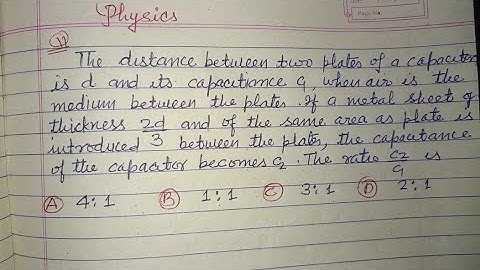 Physics
Page No.
11
The distance between two plates of a capaciter
is d and its capacitance C₁, when air is the
medium between the plates. If a metal sheet of
thickness 2d/3 and of the same area as plate is
introduced between the plates, the capacitance
of the capacitor becomes C₂. The ratio C₂/C₁ is
A 4:1 B 1:1 C 3:1 D 2:1